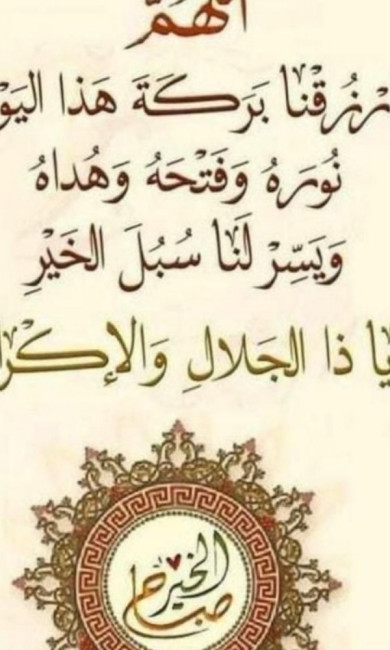 اللهم
ارزقنا بَركَةَ هَذا اليَوْ
نُورَهُ وَفَتْحَهُ وَهُداهُ
وَيَسِّرْ لَنَا سُبُلَ الخَيْرِ
يا ذا الجَلالِ وَالإكرا
صباح الخير